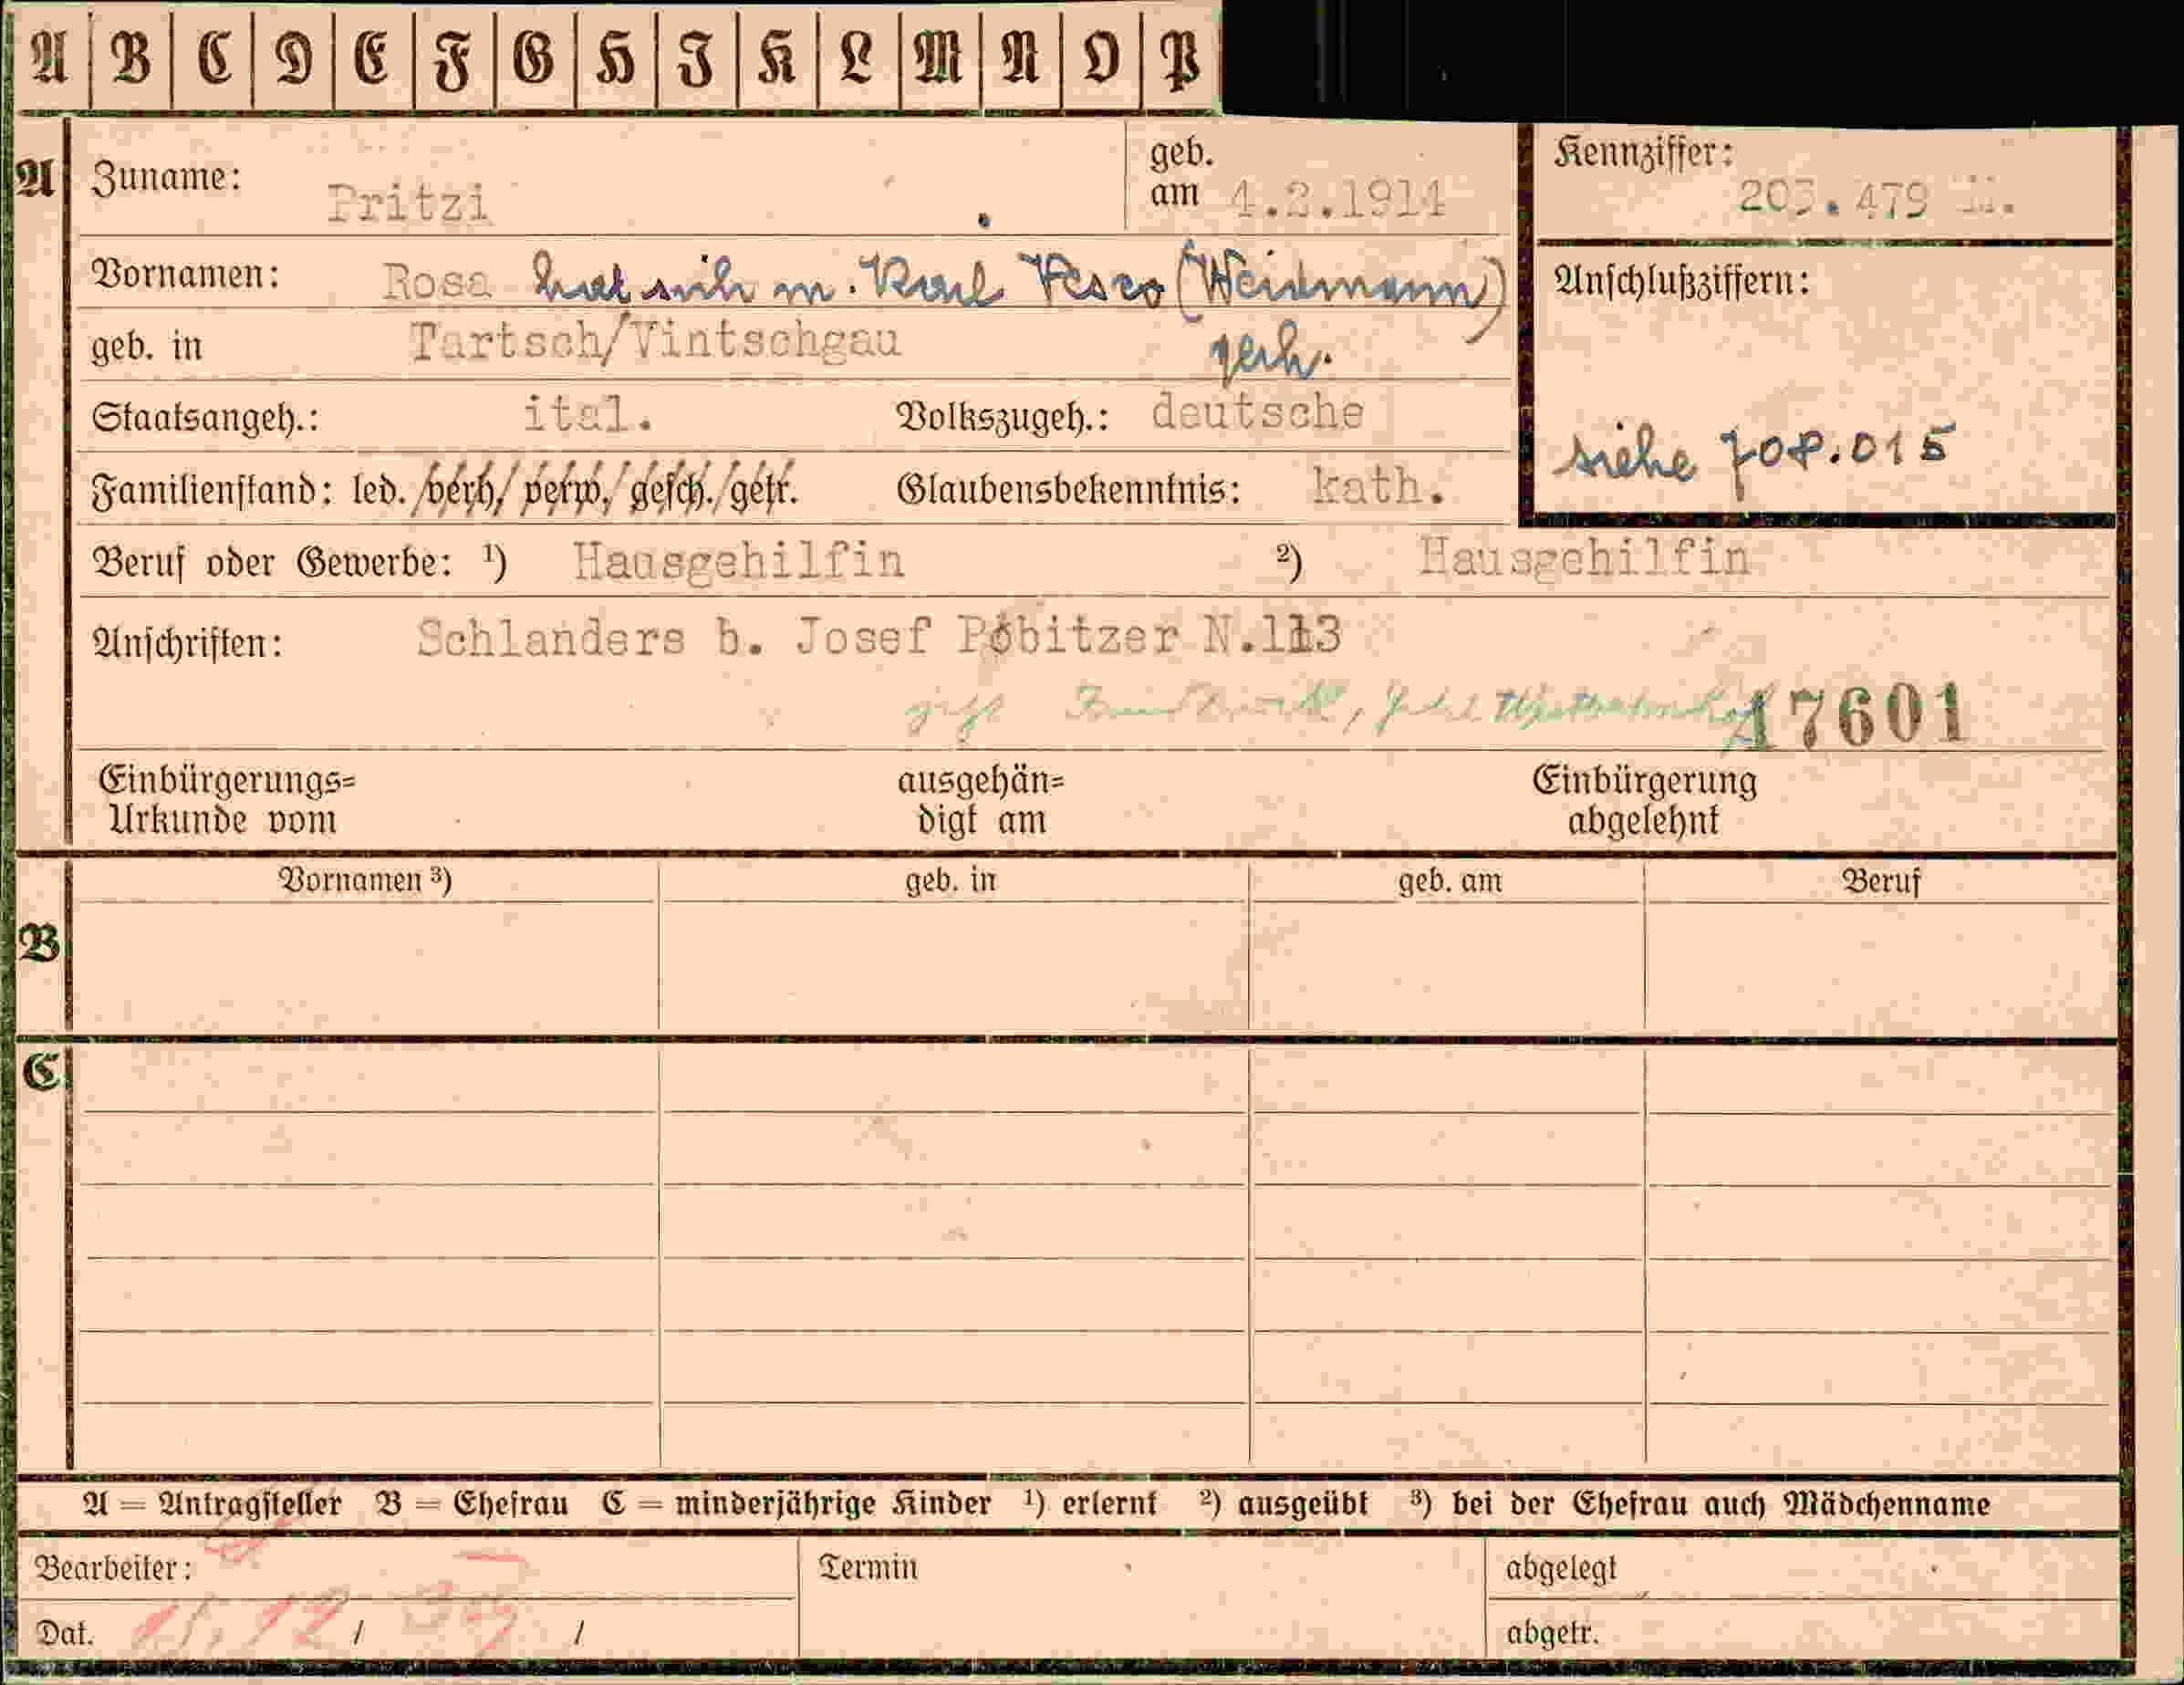 A B C D E F G H I K L M N O P
A Zuname: Pritzi geb. am 4.2.1914 Kennziffer: 203.479
Vornamen: Rosa hat sich m. Karl Pesco (Weidmann) Anschlußziffern:
geb. in Tartsch/Vintschgau verh.
Staatsangeh.: ital. Volkszugeh.: deutsche siehe 708.015
Familienstand: led./verh./verw./gesch./getr. Glaubensbekenntnis: kath.
Beruf oder Gewerbe: ¹) Hausgehilfin ²) Hausgehilfin
Anschriften: Schlanders b. Josef Pöbitzer N.113
17601
Einbürgerungs= ausgehän= Einbürgerung
Urkunde vom digt am abgelehnt
Vornamen ³) geb. in geb. am Beruf
B
C
A = Antragsteller B = Ehefrau C = minderjährige Kinder ¹) erlernt ²) ausgeübt ³) bei der Ehefrau auch Mädchenname
Bearbeiter: Termin abgelegt
Dat. 15. 12 / 39 / abgetr.